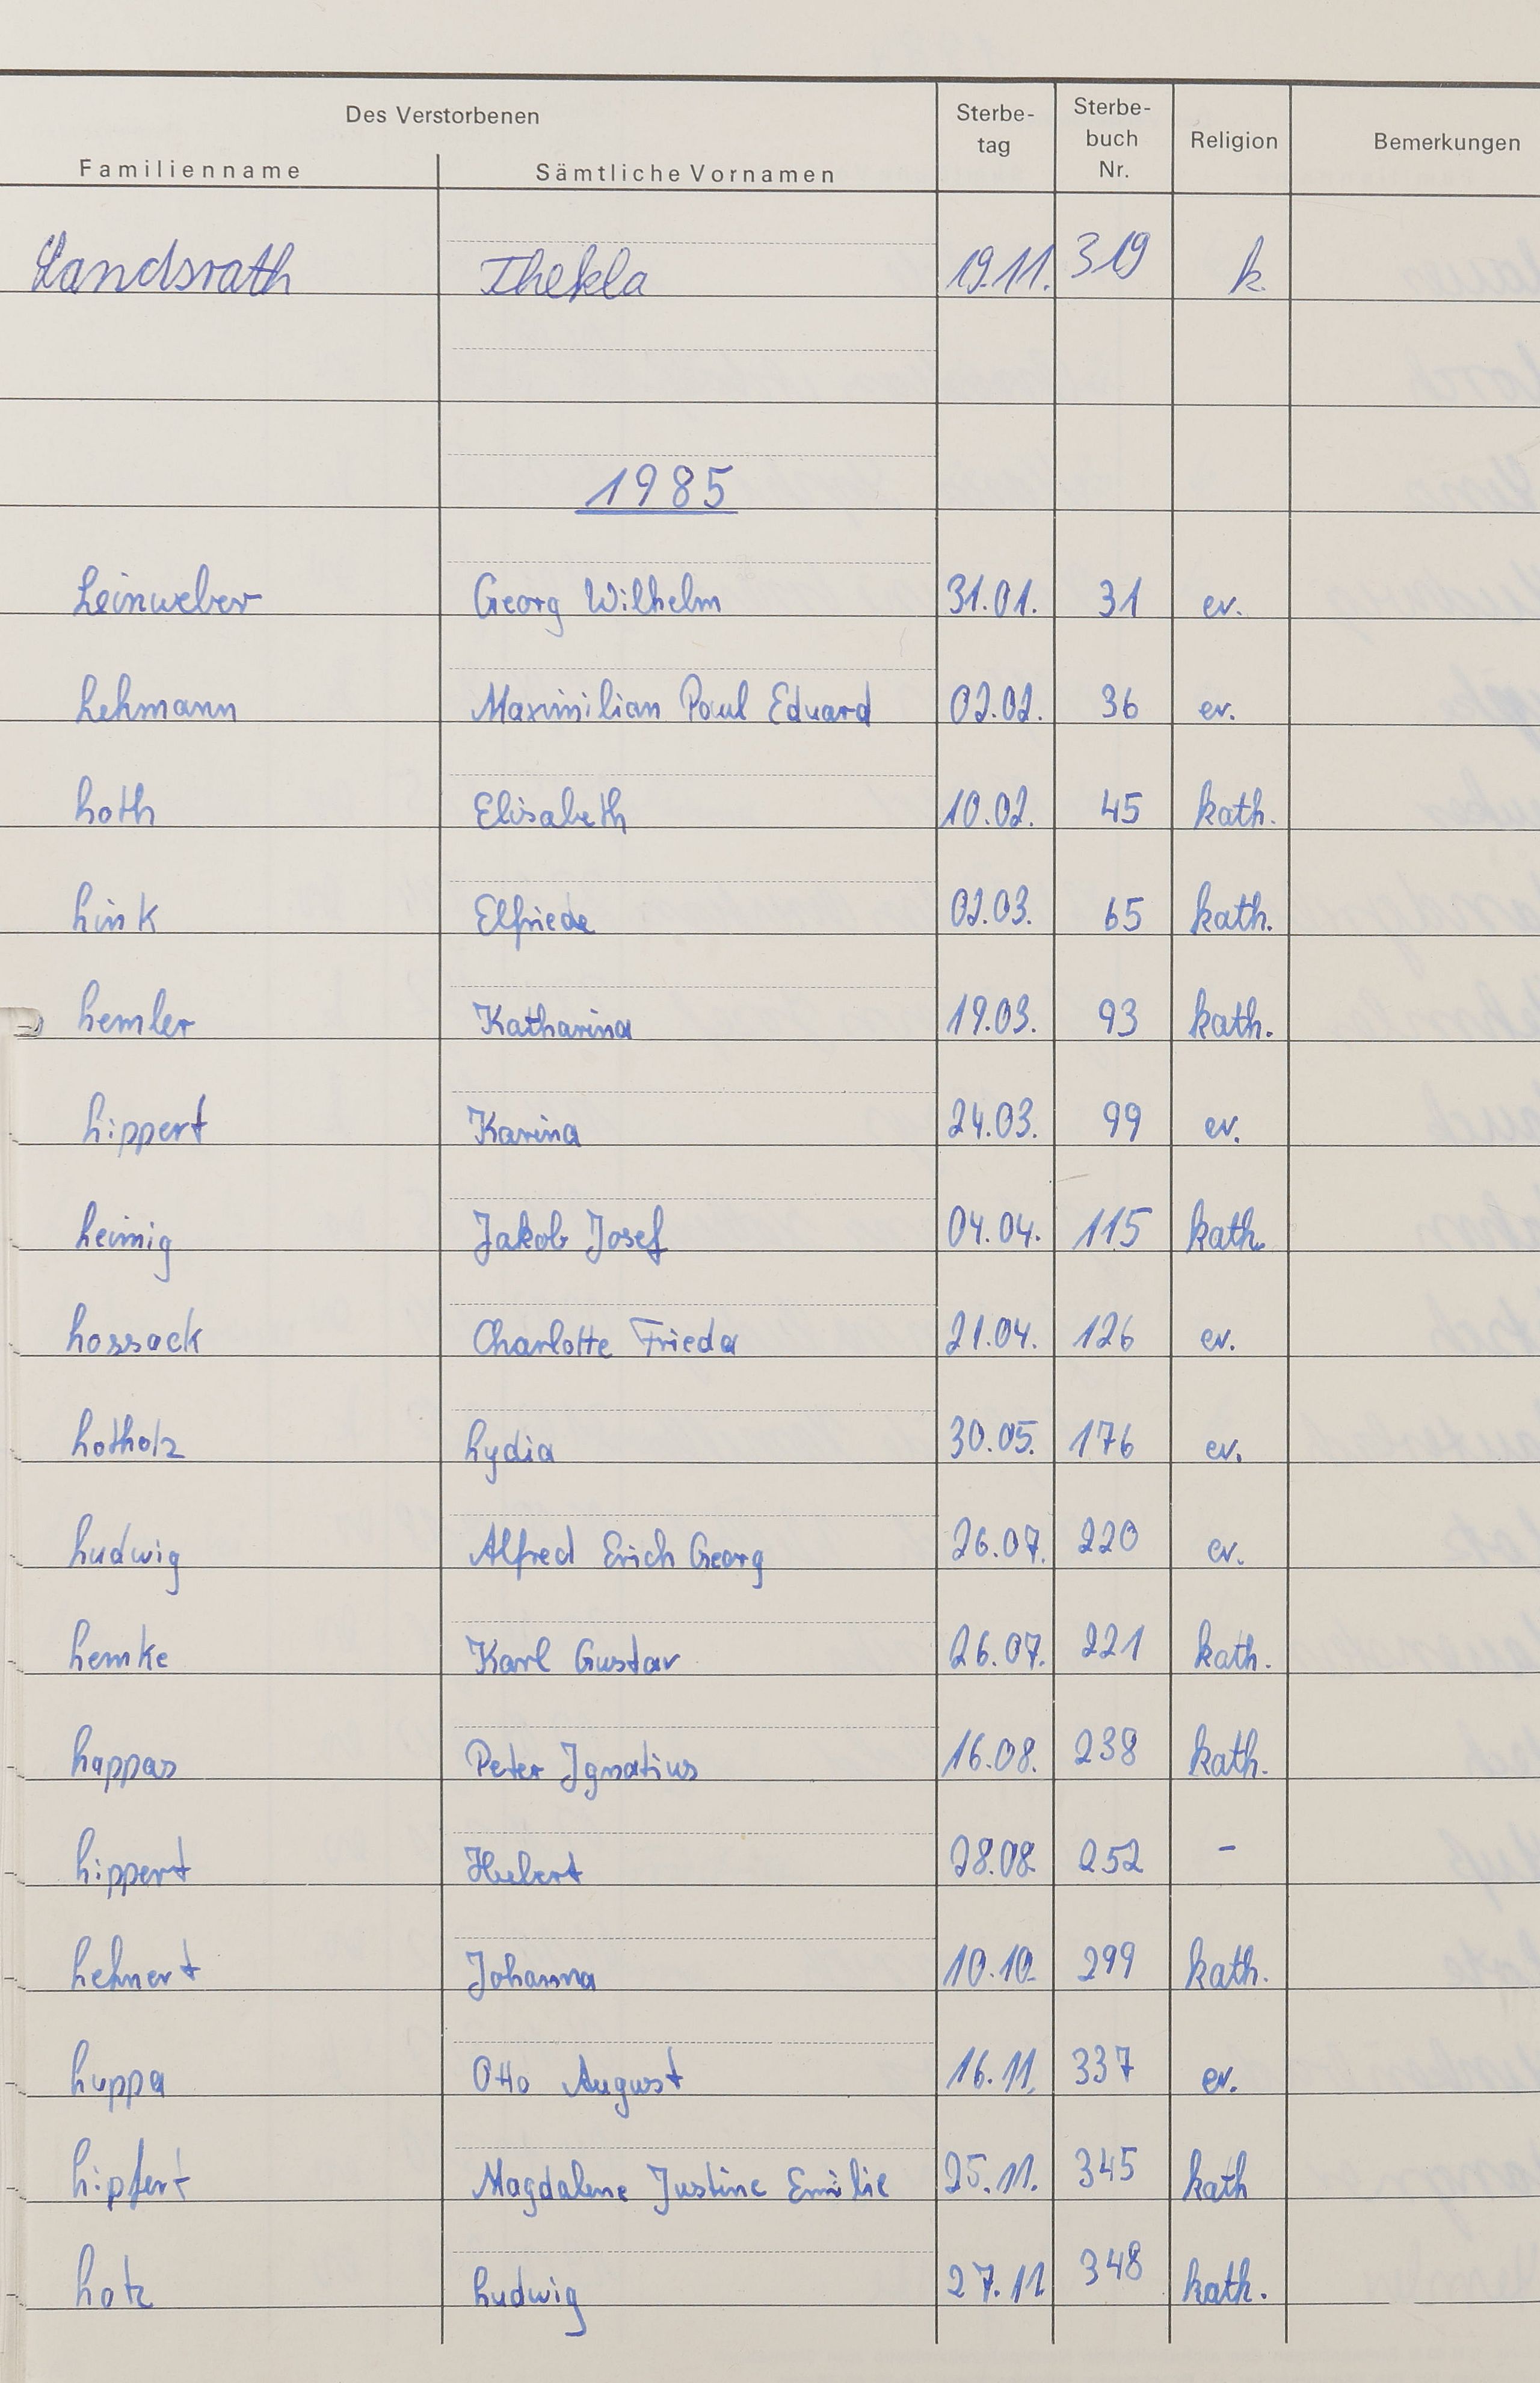 Des Verstorbenen
Familienname Sämtliche Vornamen Sterbe-tag Sterbe-buch Nr. Religion Bemerkungen
Landsrath Thekla 19.11. 319 k.
1985
Leinweber Georg Wilhelm 31.01. 31 ev.
Lehmann Maximilian Paul Eduard 02.02. 36 ev.
Loth Elisabeth 10.02. 45 kath.
Link Elfriede 02.03. 65 kath.
Lemler Katharina 19.03. 93 kath.
Lippert Karina 24.03. 99 ev.
Leimig Jakob Josef 04.04. 115 kath.
Lossack Charlotte Frieda 21.04. 126 ev.
Lotholz Lydia 30.05. 176 ev.
Ludwig Alfred Erich Georg 26.07. 220 ev.
Lemke Karl Gustav 26.07. 221 kath.
Lappas Peter Ignatius 16.08. 238 kath.
Lippert Hubert 28.08. 252 -
Lehnert Johanna 10.10. 299 kath.
Luppa Otto August 16.11. 337 ev.
Lipfert Magdalene Justine Emilie 25.11. 345 kath
Lotz Ludwig 27.11 348 kath.